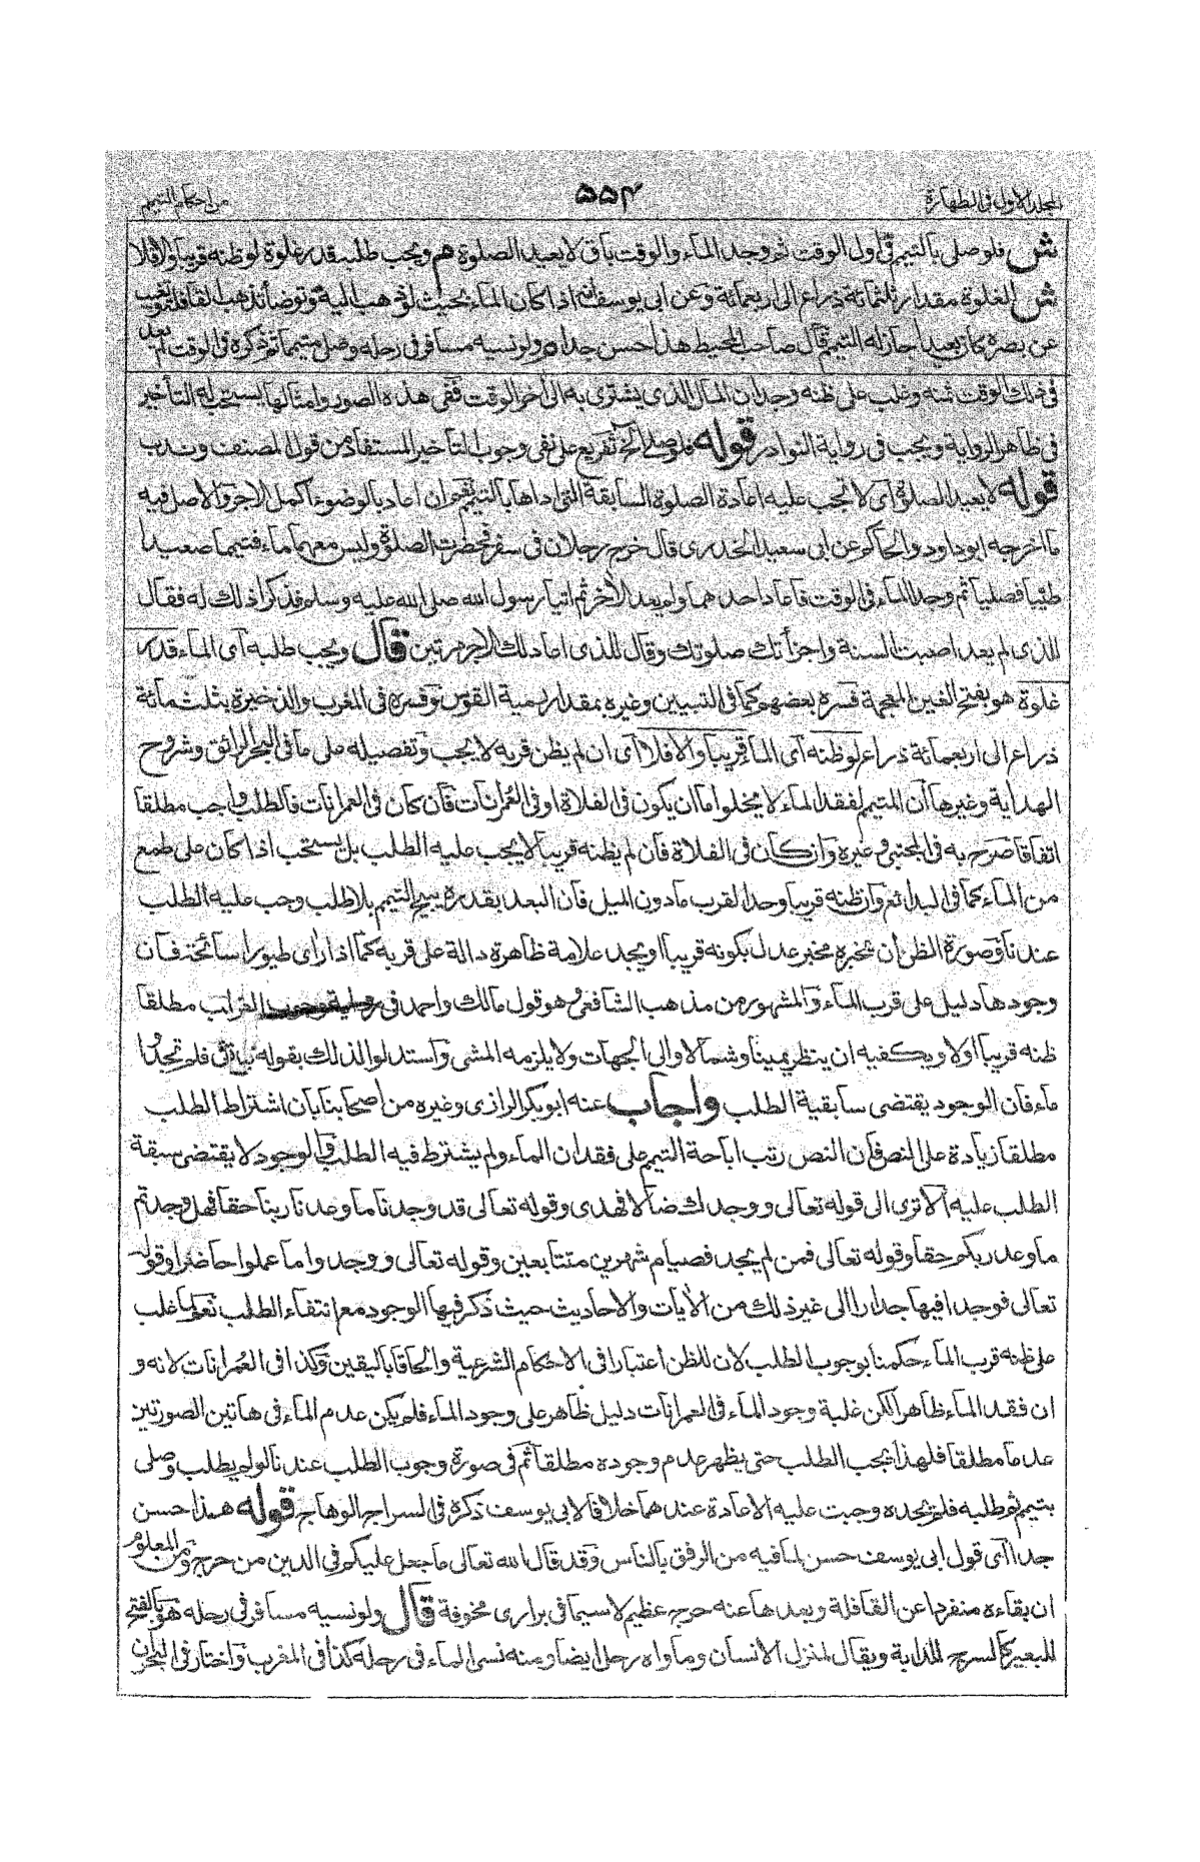 المجلد الاول فى الطهارة
۵۵۴
من احكام التيمم
ش فلو صلى بالتيمم فى اول الوقت ثم وجد الماء والوقت باق لا يعيد الصلوة م ويجب طلبه قدر غلوة لو ظنه قريبا والا فلا
ش الغلوة مقدار ثلثمائة ذراع الى اربعمائة وعن ابى يوسف انه اذا كان الماء بحيث لو ذهب اليه وتوضأ تذهب القافلة وتغيب
عن بصره كان بعيدا جاز له التيمم قال صاحب المحيط هذا حسن جدا م ولو نسيه مسافر فى رحله وصلى متيمما ثم ذكره فى الوقت لم يعد
فى ذلك الوقت ثمنه وغلب على ظنه وجدان المال الذى يشترى به الى اخر الوقت ففى هذه الصور وامثالها يستحب له التأخير
فى ظاهر الرواية ويجب فى رواية النوادر قوله فلو صلى الخ تفريع على نفى وجوب التأخير المستفاد من قول المصنف وندب
قوله لا يعيد الصلوة اى لا يجب عليه اعادة الصلوة السابقة التى اداها بالتيمم نعم ان اعاد بالوضوء اكمل الاجر والاصل فيه
ما اخرجه ابو داود والحاكم عن ابى سعيد الخدرى قال خرج رجلان فى سفر فحضرت الصلوة وليس معهما ماء فتيمما صعيدا
طيبا فصليا ثم وجدا الماء فى الوقت فاعاد احدهما ولم يعد الاخر ثم اتيا رسول الله صلى الله عليه وسلم فذكرا ذلك له فقال
للذى لم يعد اصبت السنة واجزأتك صلوتك وقال للذى اعاد لك الاجر مرتين قال ويجب طلبه اى الماء قدر
غلوة هو بفتح الغين المعجمة فسره بعضهم كما فى التبيين وغيره بمقدار رمية القوس وفسره فى المغرب والذخيرة بثلث مائة
ذراع الى اربعمائة ذراع لو ظنه اى الماء قريبا والا فلا اى ان لم يظن قربه لا يجب وتفصيله على ما فى البحر الرائق وشروح
الهداية وغيرها ان المتيمم لفقد الماء لا يخلوا ما ان يكون فى الفلاة او فى العمرانات فان كان فى العمرانات فالطلب واجب مطلقا
اتفاقا صرح به فى المجتبى وغيره وان كان فى الفلاة فان لم يظنه قريبا لا يجب عليه الطلب بل يستحب اذا كان على طمع
من الماء كما فى البدائع وان ظنه قريبا وحد القرب ما دون الميل فان البعد بقدره يبيح التيمم بلا طلب وجب عليه الطلب
عندنا وصورة الظن ان يخبره مخبر عدل بكونه قريبا او يجد علامة ظاهرة دالة على قربه كما اذا راى طيورا سائحة فان
وجودها دليل على قرب الماء والمشهور من مذهب الشافعى وهو قول مالك واحمد فى رواية وجوب الطلب مطلقا
ظنه قريبا او لا ويكفيه ان ينظر يمينا وشمالا والى الجهات ولا يلزمه المشى واستدلوا لذلك بقوله تعالى فلم تجدوا
ماء فان الوجود يقتضى سابقية الطلب واجاب عنه ابو بكر الرازى وغيره من اصحابنا بان اشتراط الطلب
مطلقا زيادة على النص فان النص رتب اباحة التيمم على فقدان الماء ولم يشترط فيه الطلب والوجود لا يقتضى سبقة
الطلب عليه الا ترى الى قوله تعالى ووجدك ضالا فهدى وقوله تعالى قد وجدنا ما وعدنا ربنا حقا فهل وجدتم
ما وعد ربكم حقا وقوله تعالى فمن لم يجد فصيام شهرين متتابعين وقوله تعالى ووجدوا ما عملوا حاضرا وقوله
تعالى فوجدا فيها جدارا الى غير ذلك من الايات والاحاديث حيث ذكر فيها الوجود مع انتفاء الطلب نعم لما غلب
على ظنه قرب الماء حكمنا بوجوب الطلب لان للظن اعتبارا فى الاحكام الشرعية والحاقا باليقين وكذا فى العمرانات لانه و
ان فقد الماء ظاهرا لكن غلبة وجود الماء فى العمرانات دليل ظاهر على وجود الماء فلم يكن عدم الماء فى هاتين الصورتين
عدما مطلقا فلهذا يجب الطلب حتى يظهر عدم وجوده مطلقا ثم فى صورة وجوب الطلب عندنا لو لم يطلب وصلى
بتيمم ثم طلبه فلم يجده وجبت عليه الاعادة عندهما خلافا لابى يوسف ذكره فى السراج الوهاج قوله هذا حسن
جدا اى قول ابى يوسف حسن لما فيه من الرفق بالناس وقد قال الله تعالى ما جعل عليكم فى الدين من حرج ومن المعلوم
ان بقاءه منفردا عن القافلة وبعدها عنه حرج عظيم لا سيما فى برارى مخوفة قال ولو نسيه مسافر فى رحله هو بالفتح
للبعير كالسرج للدابة ويقال لمنزل الانسان وماواه رحل ايضا ومنه نسى الماء فى رحله كذا فى المغرب واختار فى البحر ان